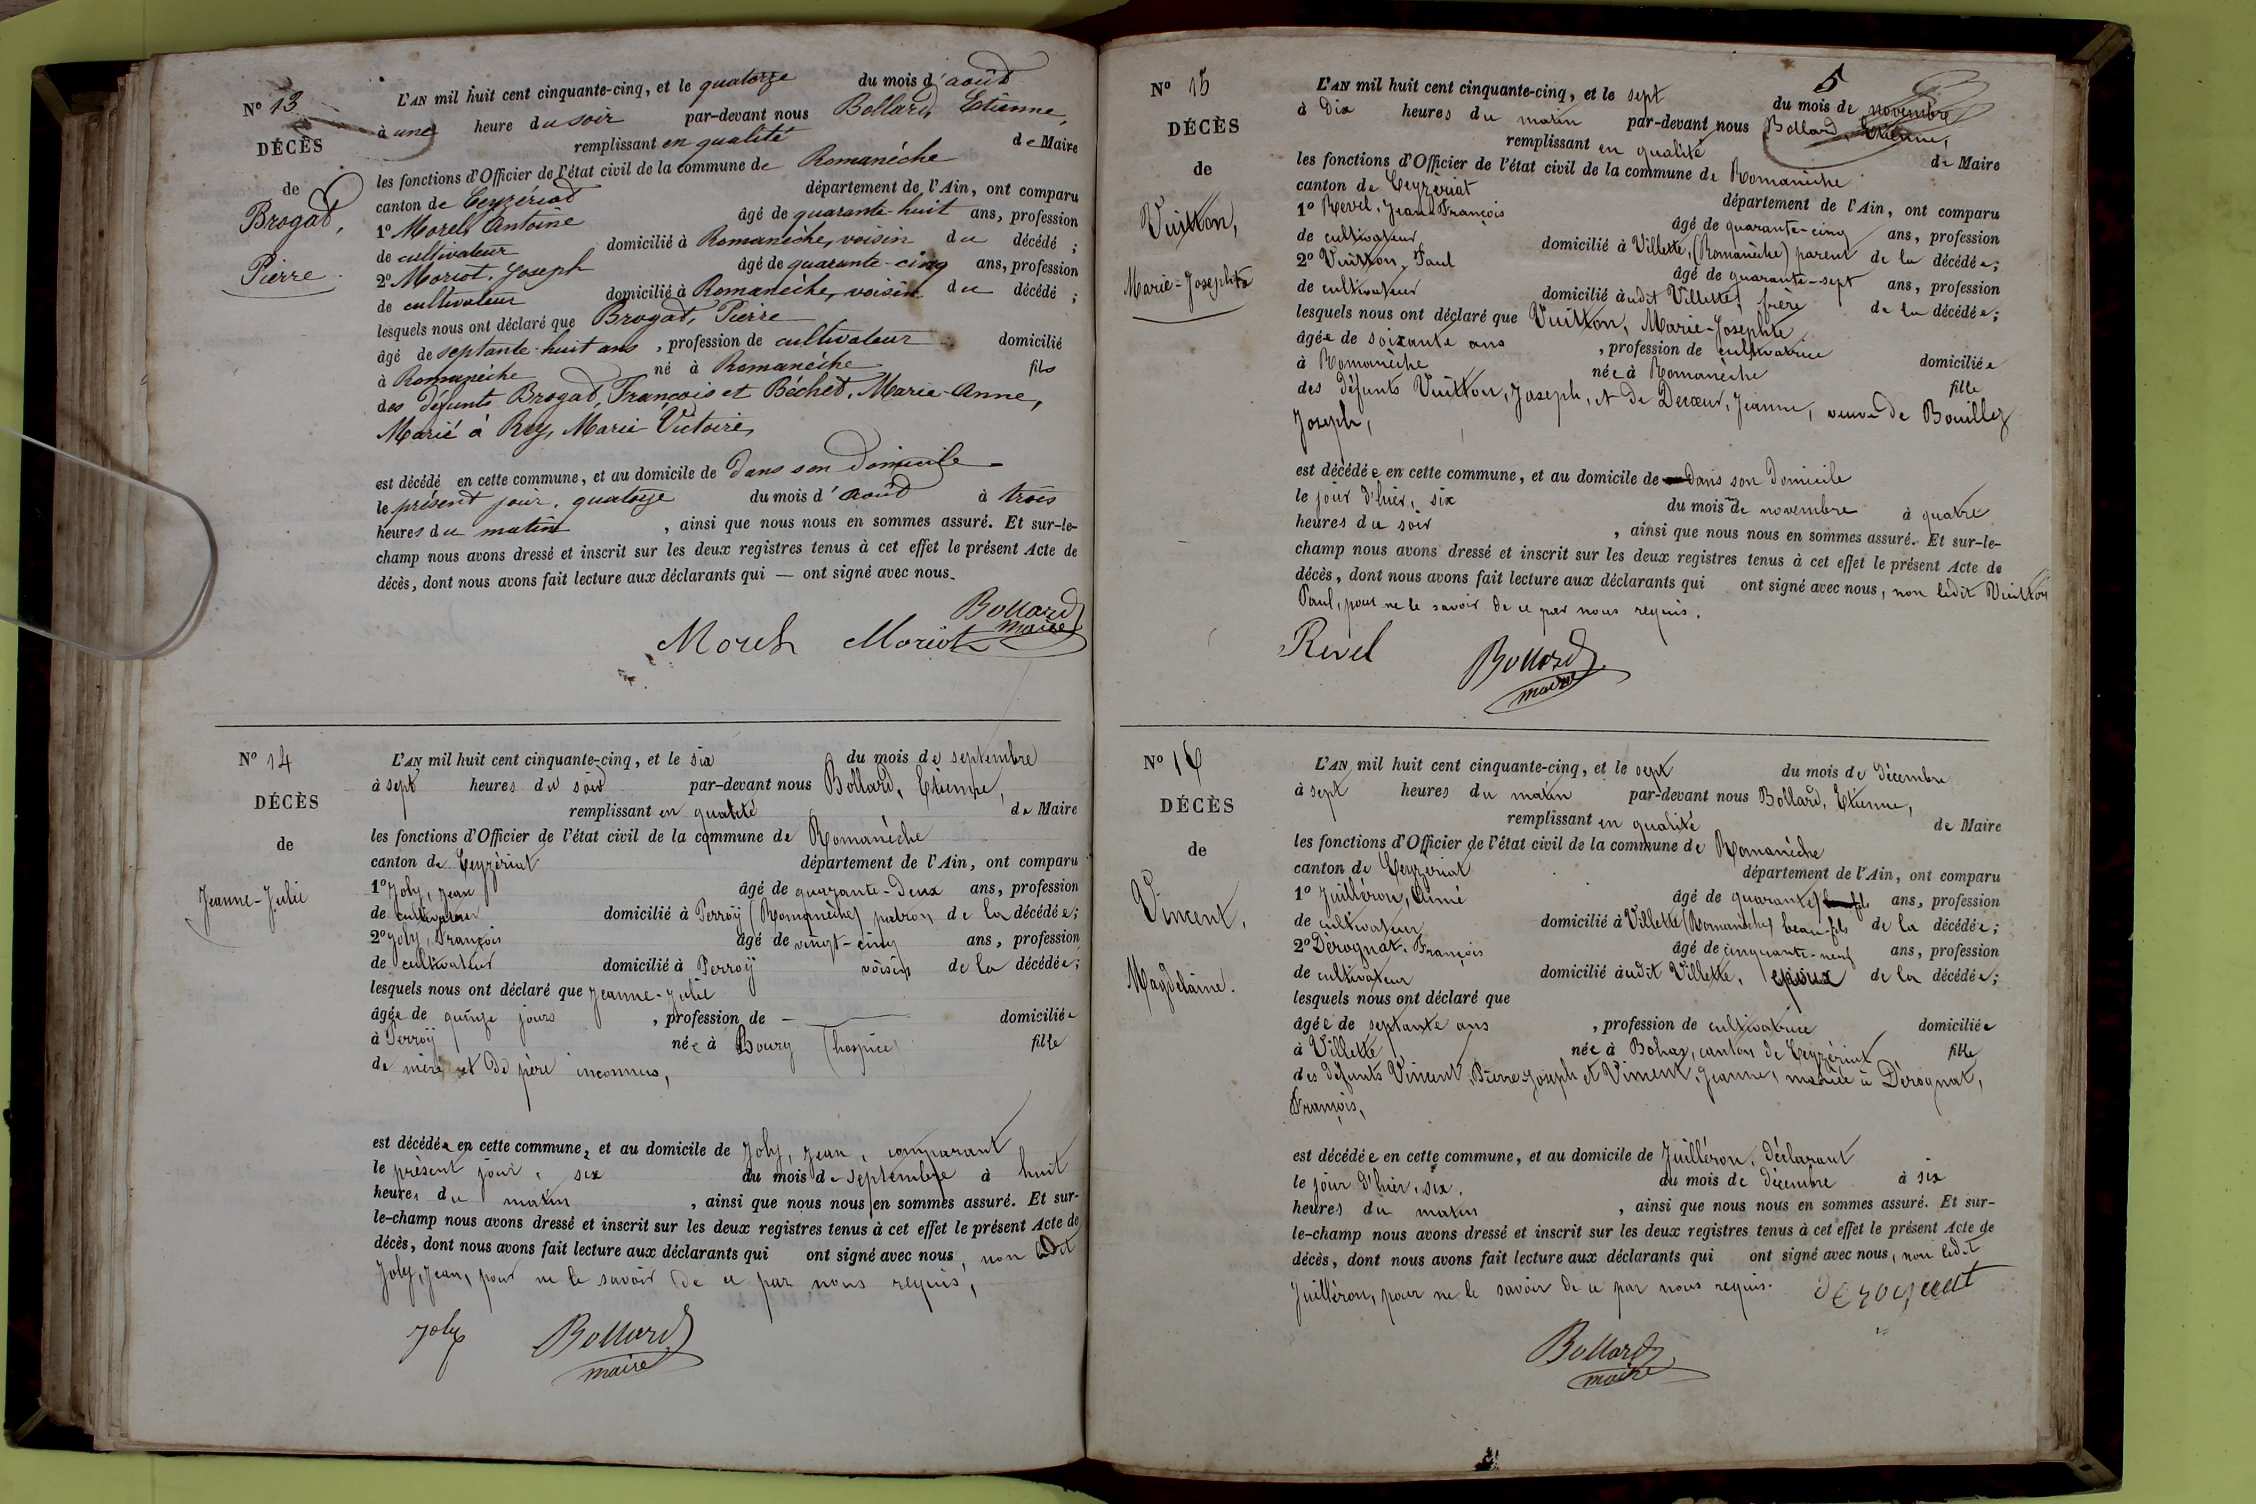 N° 13
DÉCÈS
de
Brogat,
Pierre.
L'AN mil huit cent cinquante-cinq, et le quatorze du mois d'août
à une heure du soir par-devant nous Bollard, Etienne,
remplissant en qualité de Maire
les fonctions d'Officier de l'état civil de la commune de Romanèche
canton de Ceyzériat département de l'Ain, ont comparu
1° Morel, Antoine âgé de quarante-huit ans, profession
de cultivateur domicilié à Romanèche, voisin du décédé ;
2° Moriot, Joseph âgé de quarante-cinq ans, profession
de cultivateur domicilié à Romanèche, voisin du décédé ;
lesquels nous ont déclaré que Brogat, Pierre
âgé de septante-huit ans, profession de cultivateur domicilié
à Romanèche né à Romanèche fils
des défunts Brogat, François et Béchet, Marie-Anne,
Marié à Rey, Marie Victoire,
est décédé en cette commune, et au domicile de dans son domicile
le présent jour, quatorze du mois d'août à trois
heures du matin, ainsi que nous nous en sommes assuré. Et sur-le-
champ nous avons dressé et inscrit sur les deux registres tenus à cet effet le présent Acte de
décès, dont nous avons fait lecture aux déclarants qui — ont signé avec nous.
Bollard
maire
Morel Moriot
N° 14
DÉCÈS
de
Jeanne-Julie
L'AN mil huit cent cinquante-cinq, et le six du mois de septembre
à sept heures du soir par-devant nous Bollard, Etienne,
remplissant en qualité de Maire
les fonctions d'Officier de l'état civil de la commune de Romanèche
canton de Ceyzériat département de l'Ain, ont comparu
1° Joly, Jean âgé de quarante-deux ans, profession
de cultivateur domicilié à Perroÿ (Romanèche) patron de la décédée;
2° Joly, François âgé de vingt-cinq ans, profession
de cultivateur domicilié à Perroÿ voisin de la décédée;
lesquels nous ont déclaré que Jeanne-Julie
âgée de quinze jours, profession de — domiciliée
à Perroÿ née à Bourg (hospice) fille
de mère et de père inconnus,
est décédée en cette commune, et au domicile de Joly, Jean, comparant
le présent jour, six du mois de septembre à huit
heures du matin, ainsi que nous nous en sommes assuré. Et sur-
le-champ nous avons dressé et inscrit sur les deux registres tenus à cet effet le présent Acte de
décès, dont nous avons fait lecture aux déclarants qui ont signé avec nous, non ledit
Joly, Jean, pour ne le savoir de ce par nous requis,
Joly Bollard
maire
5
N° 15
DÉCÈS
de
Vuitton,
Marie-Josephte
L'AN mil huit cent cinquante-cinq, et le sept du mois de novembre
à dix heures du matin par-devant nous Bollard, Etienne,
remplissant en qualité de Maire
les fonctions d'Officier de l'état civil de la commune de Romanèche
canton de Ceyzériat département de l'Ain, ont comparu
1° Revel, Jean-François âgé de quarante-cinq ans, profession
de cultivateur domicilié à Villette, (Romanèche) parent de la décédée;
2° Vuitton, Paul âgé de quarante-sept ans, profession
de cultivateur domicilié àudit Villette, frère de la décédée;
lesquels nous ont déclaré que Vuitton, Marie-Josephte,
âgée de soixante ans, profession de cultivatrice domiciliée
à Romanèche née à Romanèche fille
des défunts Vuitton, Joseph, et de Decœur, Jeanne, veuve de Bouillez
Joseph,
est décédée en cette commune, et au domicile de dans son domicile
le jour d'hier, six du mois de novembre à quatre
heures du soir, ainsi que nous nous en sommes assuré. Et sur-le-
champ nous avons dressé et inscrit sur les deux registres tenus à cet effet le présent Acte de
décès, dont nous avons fait lecture aux déclarants qui ont signé avec nous, non ledit Vuitton
Paul, pour ne le savoir de ce par nous requis.
Revel Bollard
maire
N° 16
DÉCÈS
de
Vincent,
Magdelaine.
L'AN mil huit cent cinquante-cinq, et le sept du mois de décembre
à sept heures du matin par-devant nous Bollard, Etienne,
remplissant en qualité de Maire
les fonctions d'Officier de l'état civil de la commune de Romanèche
canton de Ceyzériat département de l'Ain, ont comparu
1° Juilléron, Aimé âgé de quarante ans, profession
de cultivateur domicilié à Villette (Romanèche) beau-fils de la décédée;
2° Dérognat, François âgé de cinquante-neuf ans, profession
de cultivateur domicilié àudit Villette, époux de la décédée;
lesquels nous ont déclaré que
âgée de septante ans, profession de cultivatrice domiciliée
à Villette née à Bohas, canton de Ceyzériat, fille
des défunts Vincent, Pierre-Joseph et Vincent, Jeanne, mariée à Dérognat,
François,
est décédée en cette commune, et au domicile de Juilléron, déclarant
le jour d'hier, six, du mois de décembre à six
heures du matin, ainsi que nous nous en sommes assuré. Et sur-
le-champ nous avons dressé et inscrit sur les deux registres tenus à cet effet le présent Acte de
décès, dont nous avons fait lecture aux déclarants qui ont signé avec nous, non ledit
Juilléron, pour ne le savoir de ce par nous requis. derognat
Bollard
maire